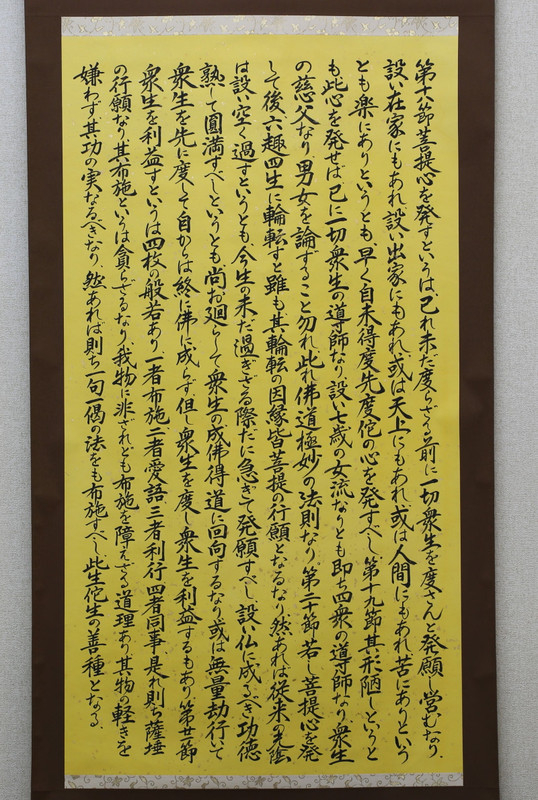 第十八節菩提心を発すというは、己れ未だ度らざる前に一切衆生を度さんと発願し営むなり、
設い在家にもあれ、設い出家にもあれ、或は天上にもあれ、或は人間にもあれ、苦にありという
とも楽にありというとも、早く自未得度先度佗の心を発すべし、第十九節其形陋しというと
も、此心を発せば、已に一切衆生の導師なり、設い七歳の女流なりとも即ち四衆の導師なり、衆生
の慈父なり、男女を論ずること勿れ、此れ佛道極妙の法則なり、第二十節若し菩提心を発
して後、六趣四生に輪転すと雖も、其輪転の因縁皆菩提の行願となるなり、然あれば従来の光陰
は設い空く過すというとも、今生の未だ過ぎざる際だに急ぎて発願すべし、設い仏に成るべき功徳
熟して圓満すべしというとも、尚お廻らして衆生の成佛得道に回向するなり、或は無量劫行いて
衆生を先に度して自からは終に佛に成らず、但し衆生を度し衆生を利益するもあり、第廿一節
衆生を利益すというは四枚の般若あり、一者布施、二者愛語、三者利行、四者同事、是れ則ち薩埵
の行願なり、其布施というは貪らざるなり、我物に非ざれども布施を障えざる道理あり、其物の軽きを
嫌わず、其功の実なるべきなり、然あれば則ち一句一偈の法をも布施すべし、此生佗生の善種となる、